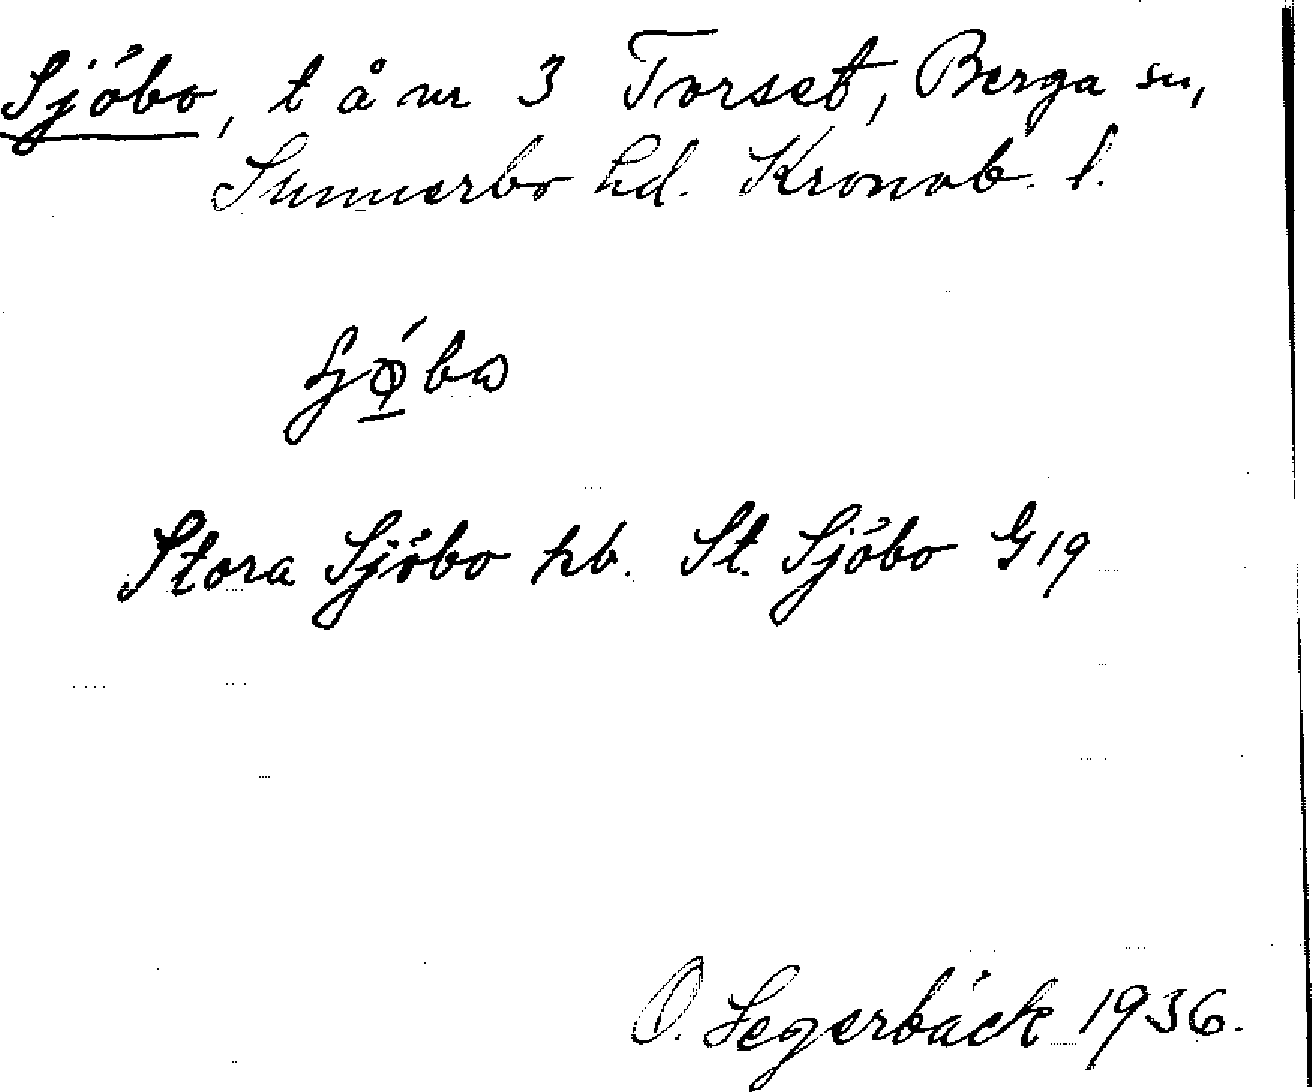 Sjöbo, t å nr 3 Torset, Berga sn,
Sunnerbo hd. Kronob. l.
Stora Sjöbo hb. St. Sjöbo G 19
O. Segerbäck 1936.